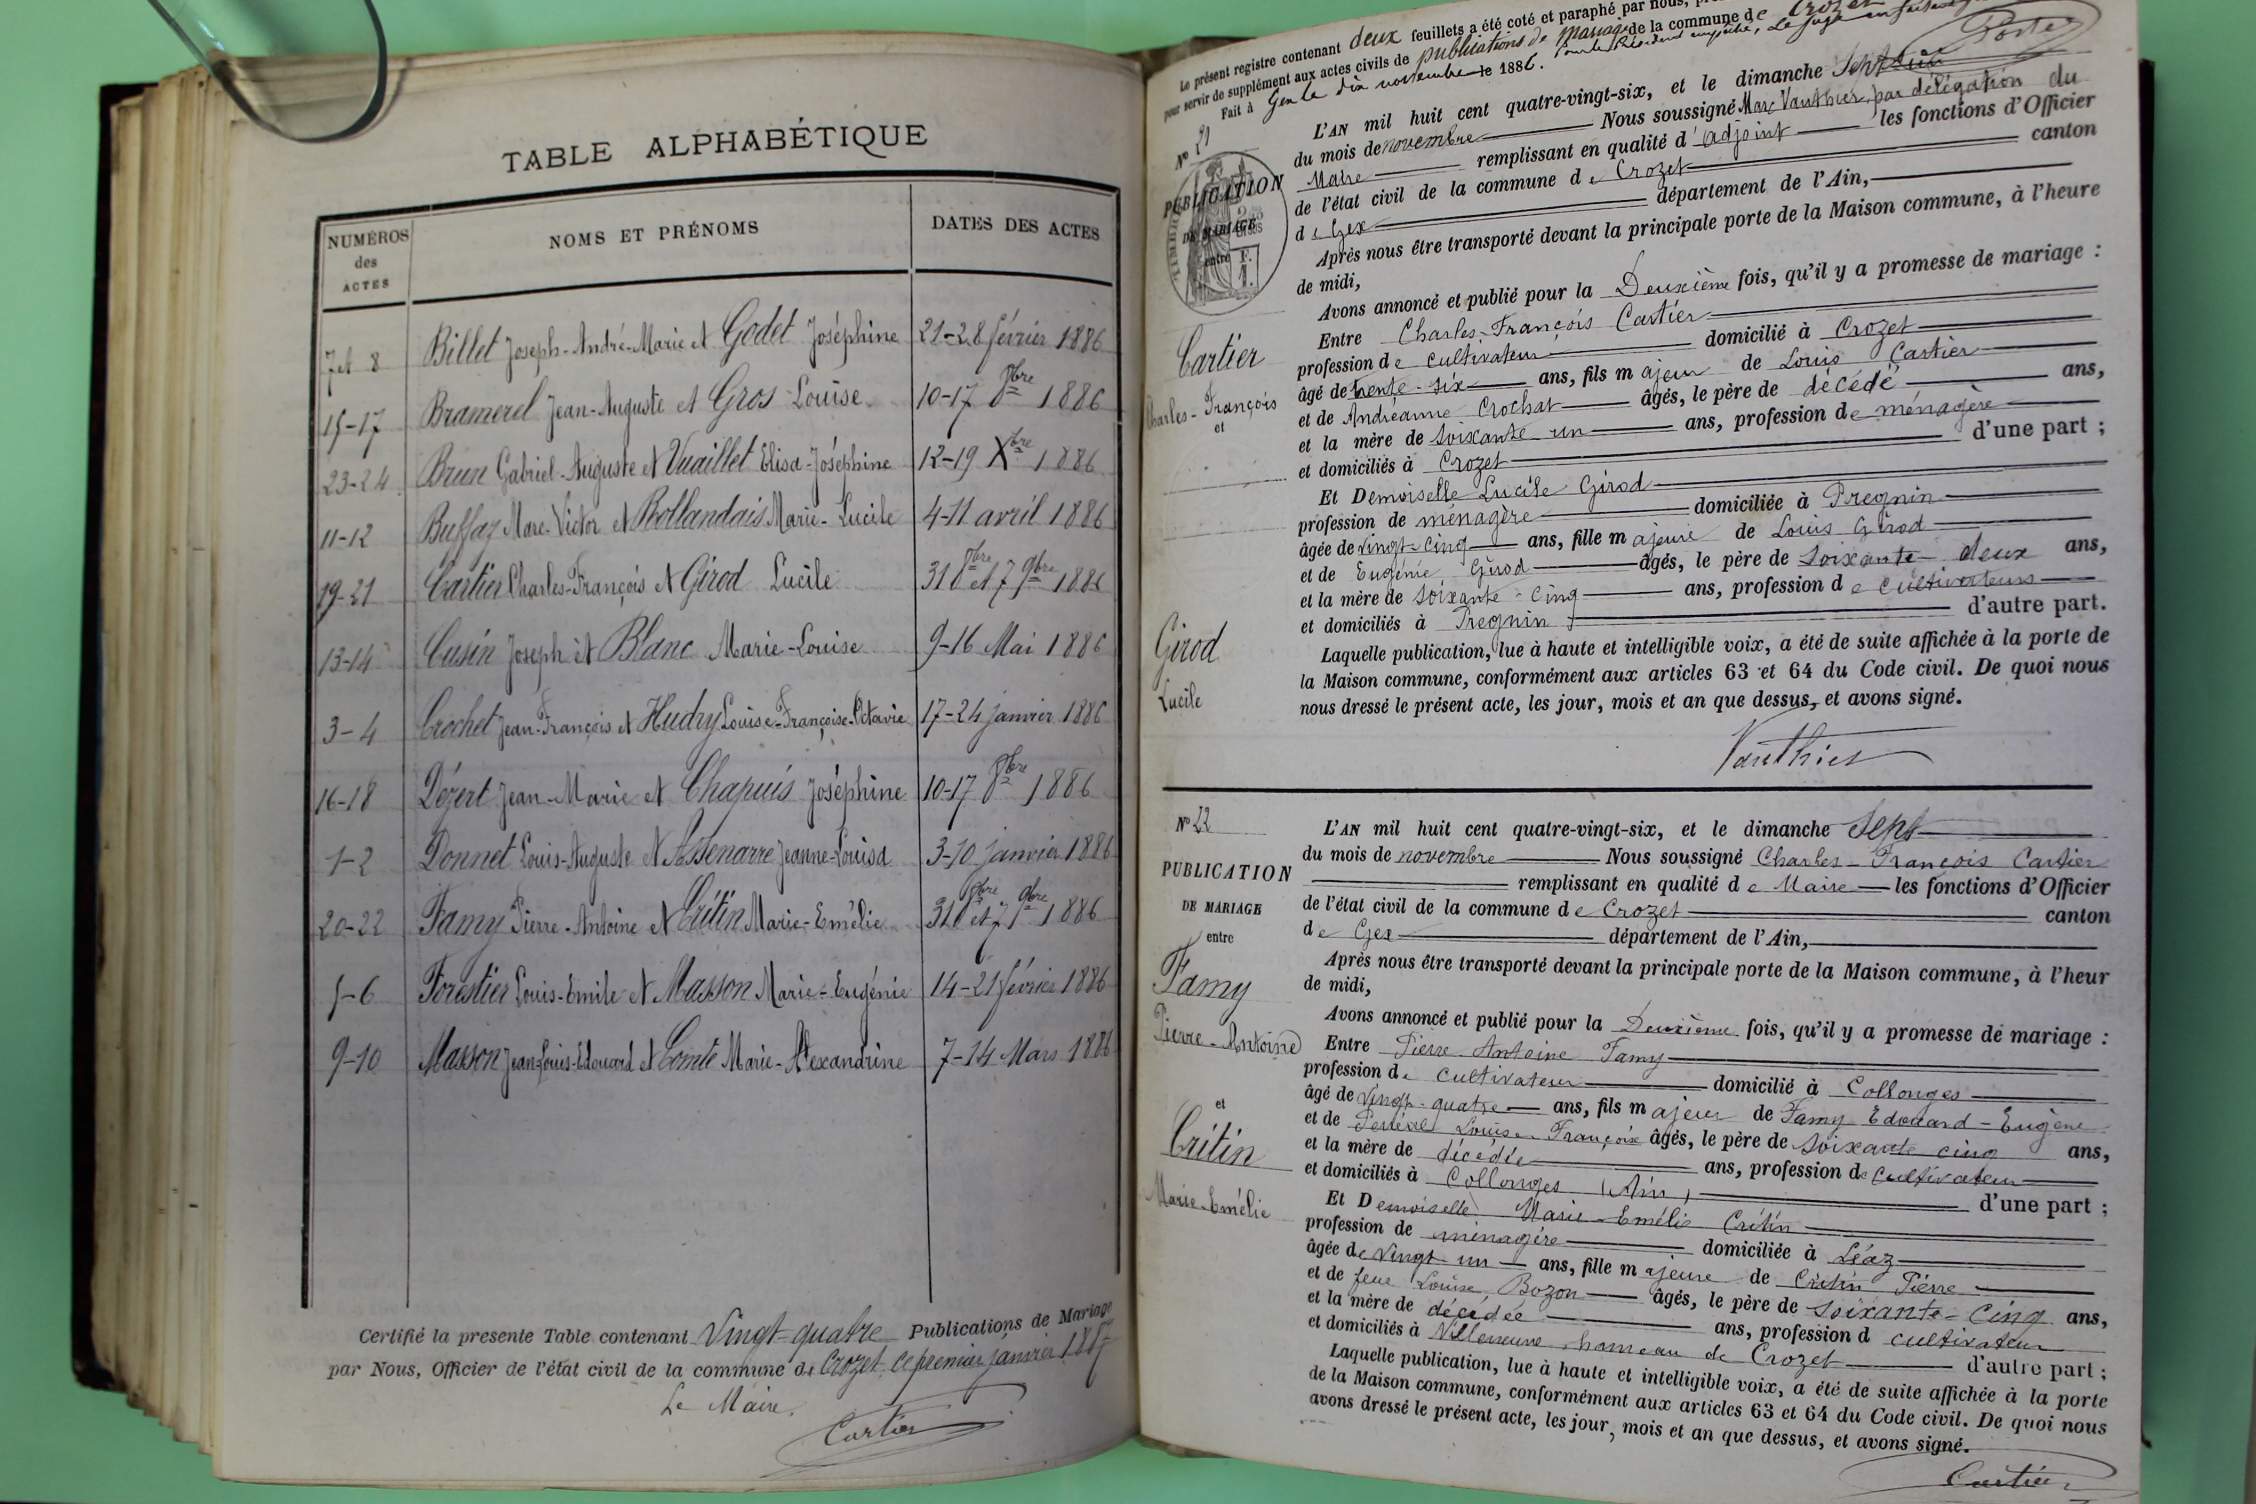 TABLE ALPHABÉTIQUE
NUMÉROS des ACTES
NOMS ET PRÉNOMS
DATES DES ACTES
7 et 8 Billet Joseph-André-Marie et Godet Joséphine 21-28 février 1886
15-17 Bramerel Jean-Auguste et Gros Louise 10-17 8bre 1886
23-24 Brun Gabriel-Auguste et Vuaillet Elisa-Joséphine 12-19 Xbre 1886
11-12 Buffaz Marc-Victor et Rollandais Marie-Lucile 4-11 avril 1886
19-21 Cartier Charles-François et Girod Lucile 31 8bre et 7 9bre 1886
13-14 Cusin Joseph et Blanc Marie-Louise 9-16 Mai 1886
3-4 Crochet Jean-François et Hudry Louise-Françoise-Octavie 17-24 janvier 1886
16-18 Dézert Jean-Marie et Chapuis Joséphine 10-17 8bre 1886
1-2 Donnet Louis-Auguste et Assenarre Jeanne-Louisa 3-10 janvier 1886
20-22 Famy Pierre-Antoine et Critin Marie-Emélie 31 8bre et 7 9bre 1886
5-6 Forestier Louis-Emile et Masson Marie-Eugénie 14-21 février 1886
9-10 Masson Jean-Louis-Edouard et Comte Marie-Alexandrine 7-14 Mars 1886
Certifié la presente Table contenant Vingt-quatre Publications de Mariage
par Nous, Officier de l'état civil de la commune de Crozet ce premier janvier 1887
Le Maire,
Cartier
Le présent registre contenant deux feuillets a été coté et paraphé par nous,
pour servir de supplément aux actes civils de publications de mariage de la commune de Crozet
Fait à Gex le dix novembre 1886. Pour le Président empêché, Le juge
Porte
No 21
PUBLICATION
DE MARIAGE
entre
Cartier
Charles-François
et
Girod
Lucile
L'AN mil huit cent quatre-vingt-six, et le dimanche Sept
du mois de novembre Nous soussigné Marc Vauthier, par délégation du
Maire remplissant en qualité d'adjoint les fonctions d'Officier
de l'état civil de la commune de Crozet canton
de Gex département de l'Ain,
Après nous être transporté devant la principale porte de la Maison commune, à l'heure
de midi,
Avons annoncé et publié pour la Deuxième fois, qu'il y a promesse de mariage :
Entre Charles-François Cartier
profession de cultivateur domicilié à Crozet
âgé de trente-six ans, fils majeur de Louis Cartier
et de Andréanne Crochat âgés, le père de décédé ans,
et la mère de soixante-un ans, profession de ménagère
et domiciliés à Crozet d'une part ;
Et Demoiselle Lucile Girod
profession de ménagère domiciliée à Pregnin
âgée de vingt-cinq ans, fille majeure de Louis Girod
et de Eugénie Girod âgés, le père de soixante-deux ans,
et la mère de soixante-cinq ans, profession de cultivateurs
et domiciliés à Pregnin d'autre part.
Laquelle publication, lue à haute et intelligible voix, a été de suite affichée à la porte de
la Maison commune, conformément aux articles 63 et 64 du Code civil. De quoi nous
nous dressé le présent acte, les jour, mois et an que dessus, et avons signé.
Vauthier
No 22
PUBLICATION
DE MARIAGE
entre
Famy
Pierre-Antoine
et
Critin
Marie-Emélie
L'AN mil huit cent quatre-vingt-six, et le dimanche Sept
du mois de novembre Nous soussigné Charles-François Cartier
remplissant en qualité de Maire les fonctions d'Officier
de l'état civil de la commune de Crozet canton
de Gex département de l'Ain,
Après nous être transporté devant la principale porte de la Maison commune, à l'heur
de midi,
Avons annoncé et publié pour la Deuxième fois, qu'il y a promesse de mariage :
Entre Pierre Antoine Famy
profession de cultivateur domicilié à Collonges
âgé de vingt-quatre ans, fils majeur de Famy Edouard-Eugène
et de Louise-Françoise âgés, le père de soixante cinq ans,
et la mère de décédée ans, profession de cultivateur
et domiciliés à Collonges (Ain) d'une part ;
Et Demoiselle Marie-Emélie Critin
profession de ménagère domiciliée à Léaz
âgée de vingt-un ans, fille majeure de Critin Pierre
et de feue Louise Bozon âgés, le père de soixante-cinq ans,
et la mère de décédée ans, profession d cultivateur
et domiciliés à Villeneuve hameau de Crozet d'autre part ;
Laquelle publication, lue à haute et intelligible voix, a été de suite affichée à la porte
de la Maison commune, conformément aux articles 63 et 64 du Code civil. De quoi nous
avons dressé le présent acte, les jour, mois et an que dessus, et avons signé.
Cartier